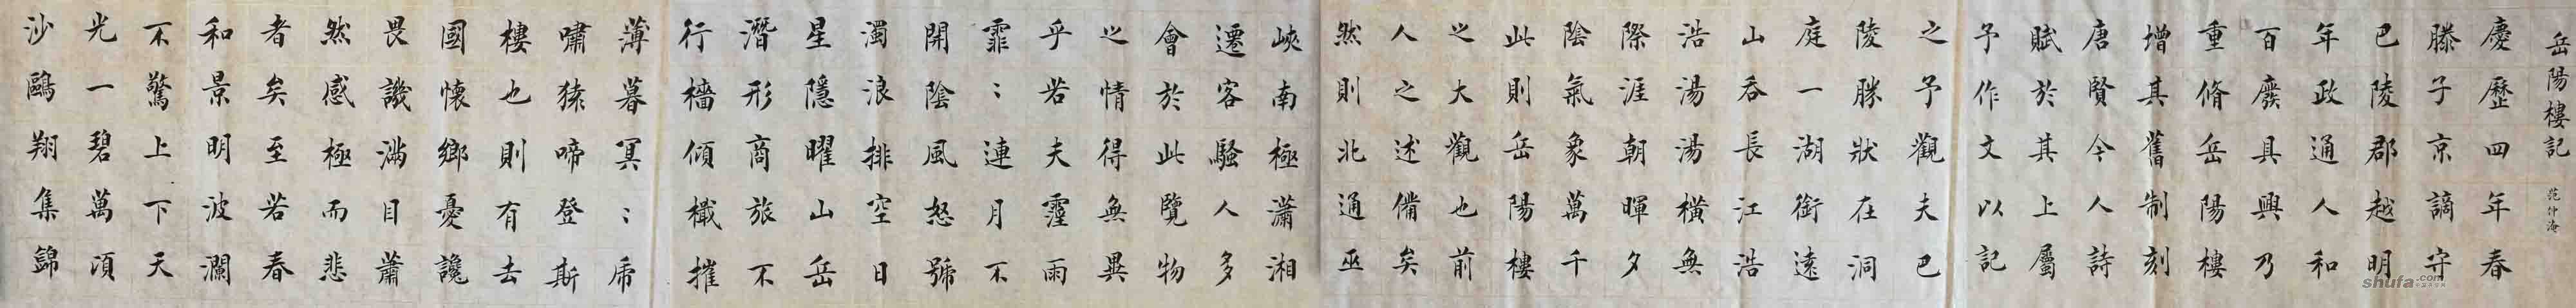 岳陽樓記 范仲淹
慶歷四年春
滕子京謫守
巴陵郡越明
年政通人和
百廢具興乃
重脩岳陽樓
增其舊制刻
唐賢今人詩
賦於其上屬
予作文以記
之予觀夫巴
陵勝狀在洞
庭一湖銜遠
山吞長江浩
浩湯湯橫無
際涯朝暉夕
陰氣象萬千
此則岳陽樓
之大觀也前
人之述備矣
然則北通巫
峽南極瀟湘
遷客騷人多
會於此覽物
之情得無異
乎若夫霪雨
霏〻連月不
開陰風怒號
濁浪排空日
星隱曜山岳
潛形商旅不
行檣傾檝摧
薄暮冥〻虎
嘯猿啼登斯
樓也則有去
國懷鄉憂讒
畏譏滿目蕭
然感極而悲
者矣至若春
和景明波瀾
不驚上下天
光一碧萬頃
沙鷗翔集錦
shufa.com